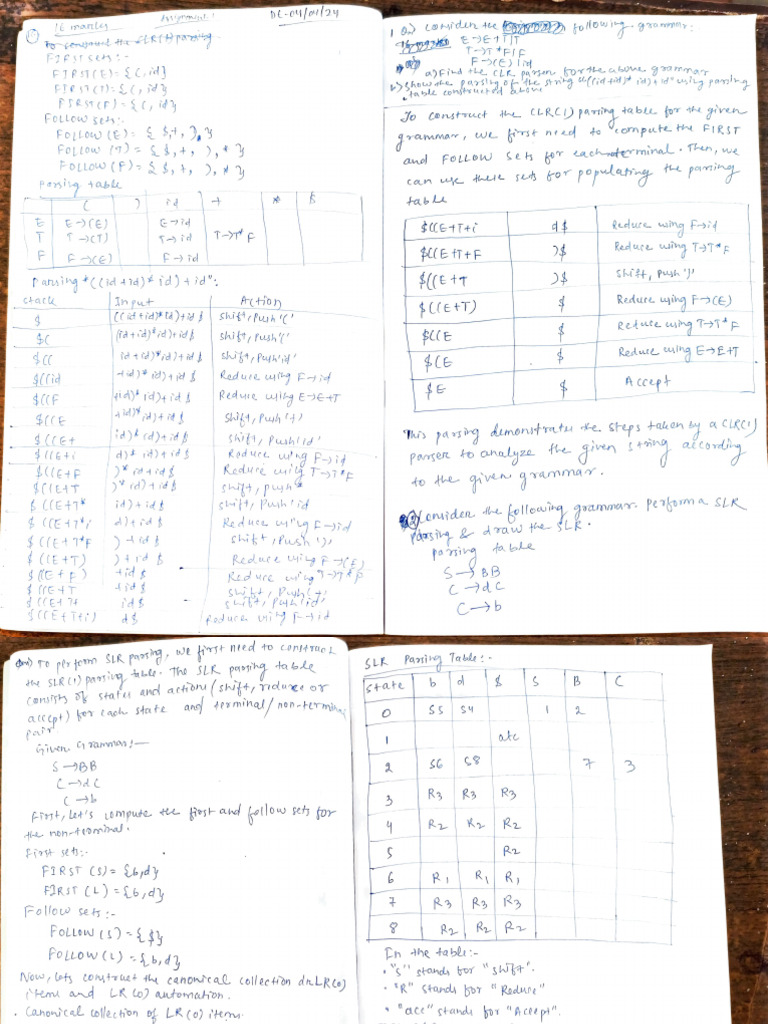 1E marks Assignment 1 Dt-04/01/24
To construct the SLR(1) parsing
FIRST sets:-
FIRST(E) = {(, id}
FIRST(T) = {(, id}
FIRST(F) = {(, id}
FOLLOW sets:-
FOLLOW (E) = { $,+, ), }
FOLLOW (T) = { $, +, ), * }
FOLLOW (F) = { $, +, ), * }
Parsing table
( ) id + * $
E E→(E) E→id
T T→(T) T→id T→T*F
F F→(E) F→id
Parsing "((id+id)* id) + id":
Stack Input Action
$ ((id+id)*id)+id$ Shift, Push '('
$( (id+id)*id)+id$ Shift, Push '('
$(( id+id)*id)+id$ Shift, Push 'id'
$((id +id)* id)+id$ Reduce using F→id
$((F +id)* id)+id$ Reduce using E→E+T
$((E +id)* id)+id$ Shift, Push '+'
$((E+ id)* id)+id$ Shift, Push 'id'
$((E+i d)* id)+id$ Reduce using F→id
$((E+F )* id+id$ Reduce using T→T*F
$((E+T )* id)+id$ Shift, push *
$((E+T* id)+id$ Shift, Push 'id
$((E+T*i d)+id$ Reduce using F→id
$((E+T*F )+id$ Shift, Push ')'
$((E+T) )+id$ Reduce using F→(E)
$((E+F) +id$ Reduce using T→T*F
$((E+T +id$ Shift, Push '+'
$((E+T+ id$ Shift, Push 'id'
$((E+T+i) d$ Reduce using F→id
1 Q) Consider the following grammar:
E→E+T|T
T→T*F|F
F→(E)|id
a) Find the CLR parser for the above grammar
b) Show the parsing of the string "((id+id)* id)+id" using parsing
table constructed above
To construct the CLR(1) parsing table for the given
grammar, we first need to compute the FIRST
and FOLLOW sets for each terminal. Then, we
can use these sets for populating the parsing
table
$((E+T+i d$ Reduce using F→id
$((E+T+F )$ Reduce using T→T*F
$((E+T )$ Shift, Push ')'
$((E+T) $ Reduce using F→(E)
$((E $ Reduce using T→T*F
$(E $ Reduce using E→E+T
$E $ Accept
This parsing demonstrates the steps taken by a CLR(1)
parser to analyze the given string according
to the given grammar.
2 Consider the following grammar. Perform a SLR
parsing & draw the SLR.
parsing table
S→BB
C→dC
C→b
Ans) To perform SLR parsing, we first need to construct
the SLR(1) parsing table. The SLR parsing table
consists of states and actions (shift, reduce or
accept) for each state and terminal/non-terminal
pair.
Given Grammar:-
S→BB
C→dC
C→b
First, Let's compute the first and follow sets for
the non-terminal.
First sets:-
FIRST (S) = {b,d}
FIRST (L) = {b,d}
Follow sets:-
FOLLOW (S) = {$}
FOLLOW (L) = {b,d}
Now, lets construct the canonical collection dn LR(0)
items and LR(0) automation.
• Canonical collection of LR(0) items
SLR Parsing Table:-
State b d $ S B C
0 S5 S4 1 2
1 atc
2 S6 S8 7 3
3 R3 R3 R3
4 R2 R2 R2
5 R2
6 R1 R1 R1
7 R3 R3 R3
8 R2 R2 R2
In the table:-
• "S" stands for "shift".
• "R" stands for "Reduce"
• "acc" stands for "Accept".